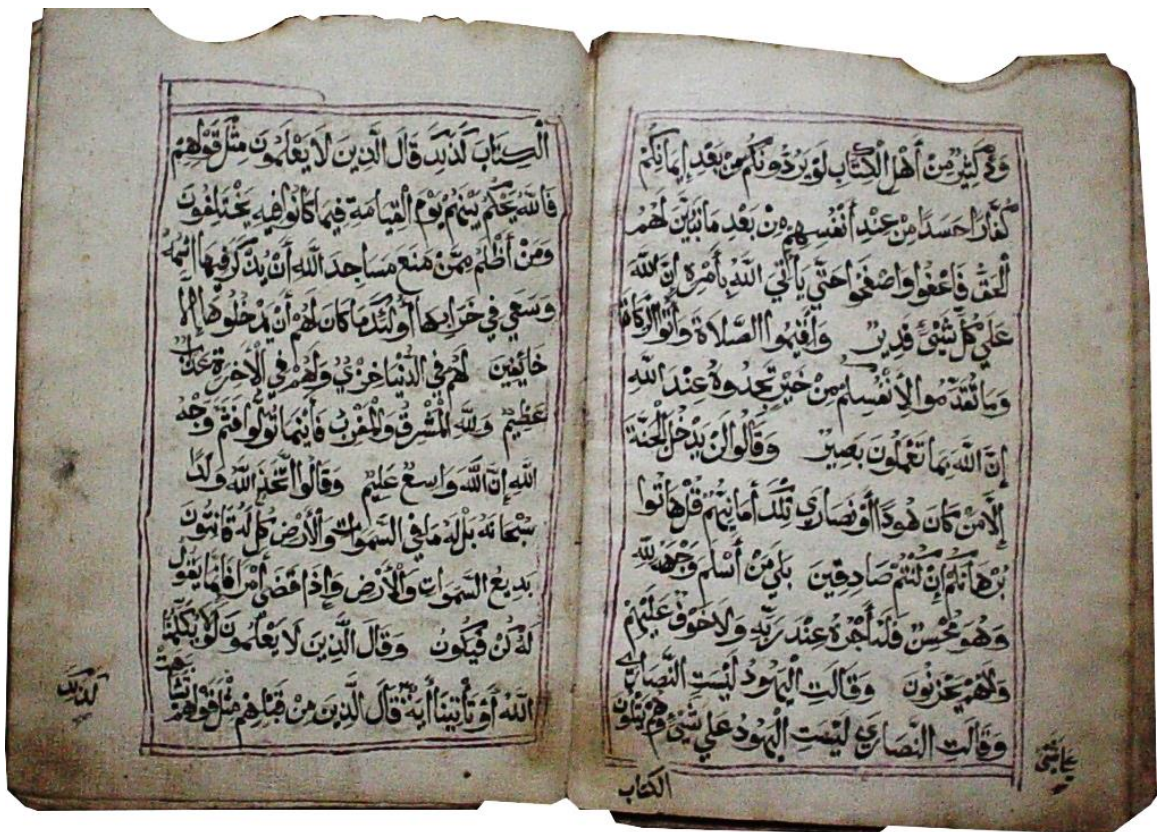 ود كثير من أهل الكتاب لو يردونكم من بعد إيمانكم
كفارا حسدا من عند أنفسهم من بعد ما تبين لهم
الحق فاعفوا واصفحوا حتي يأتي الله بأمره إن الله
علي كل شيئ قدير وأقيموا الصلاة وأتوا الزكاة
وما تقدموا لأنفسكم من خير تجدوه عند الله
إن الله بما تعملون بصير وقالوا لن يدخل الجنة
إلا من كان هودا أو نصاري تلك أمانيهم قل هاتوا
برهانكم إن كنتم صادقين بلي من أسلم وجهه لله
وهو محسن فله أجره عند ربه ولا خوف عليهم
ولا هم يحزنون وقالت اليهود ليست النصاري
علي شيئ
وقالت النصاري ليست اليهود علي شيئ وهم يتلون
الكتاب
الكتاب كذلك قال الذين لا يعلمون مثل قولهم
فالله يحكم بينهم يوم القيامة فيما كانوا فيه يختلفون
ومن أظلم ممن منع مساجد الله أن يذكر فيها اسمه
وسعي في خرابها أولئك ما كان لهم أن يدخلوها إلا
خائفين لهم في الدنيا خزي ولهم في الأخرة عذاب
عظيم ولله المشرق والمغرب فأينما تولوا فثم وجه
الله إن الله واسع عليم وقالوا اتخذ الله ولدا
سبحانه بل له ما في السموات والأرض كل له قانتون
بديع السموات والأرض وإذا قضي أمرا فإنما يقول
له كن فيكون وقال الذين لا يعلمون لولا يكلمنا
الله أو تأتينا أية قال الذين من قبلهم مثل قولهم تشابهت
كذلك